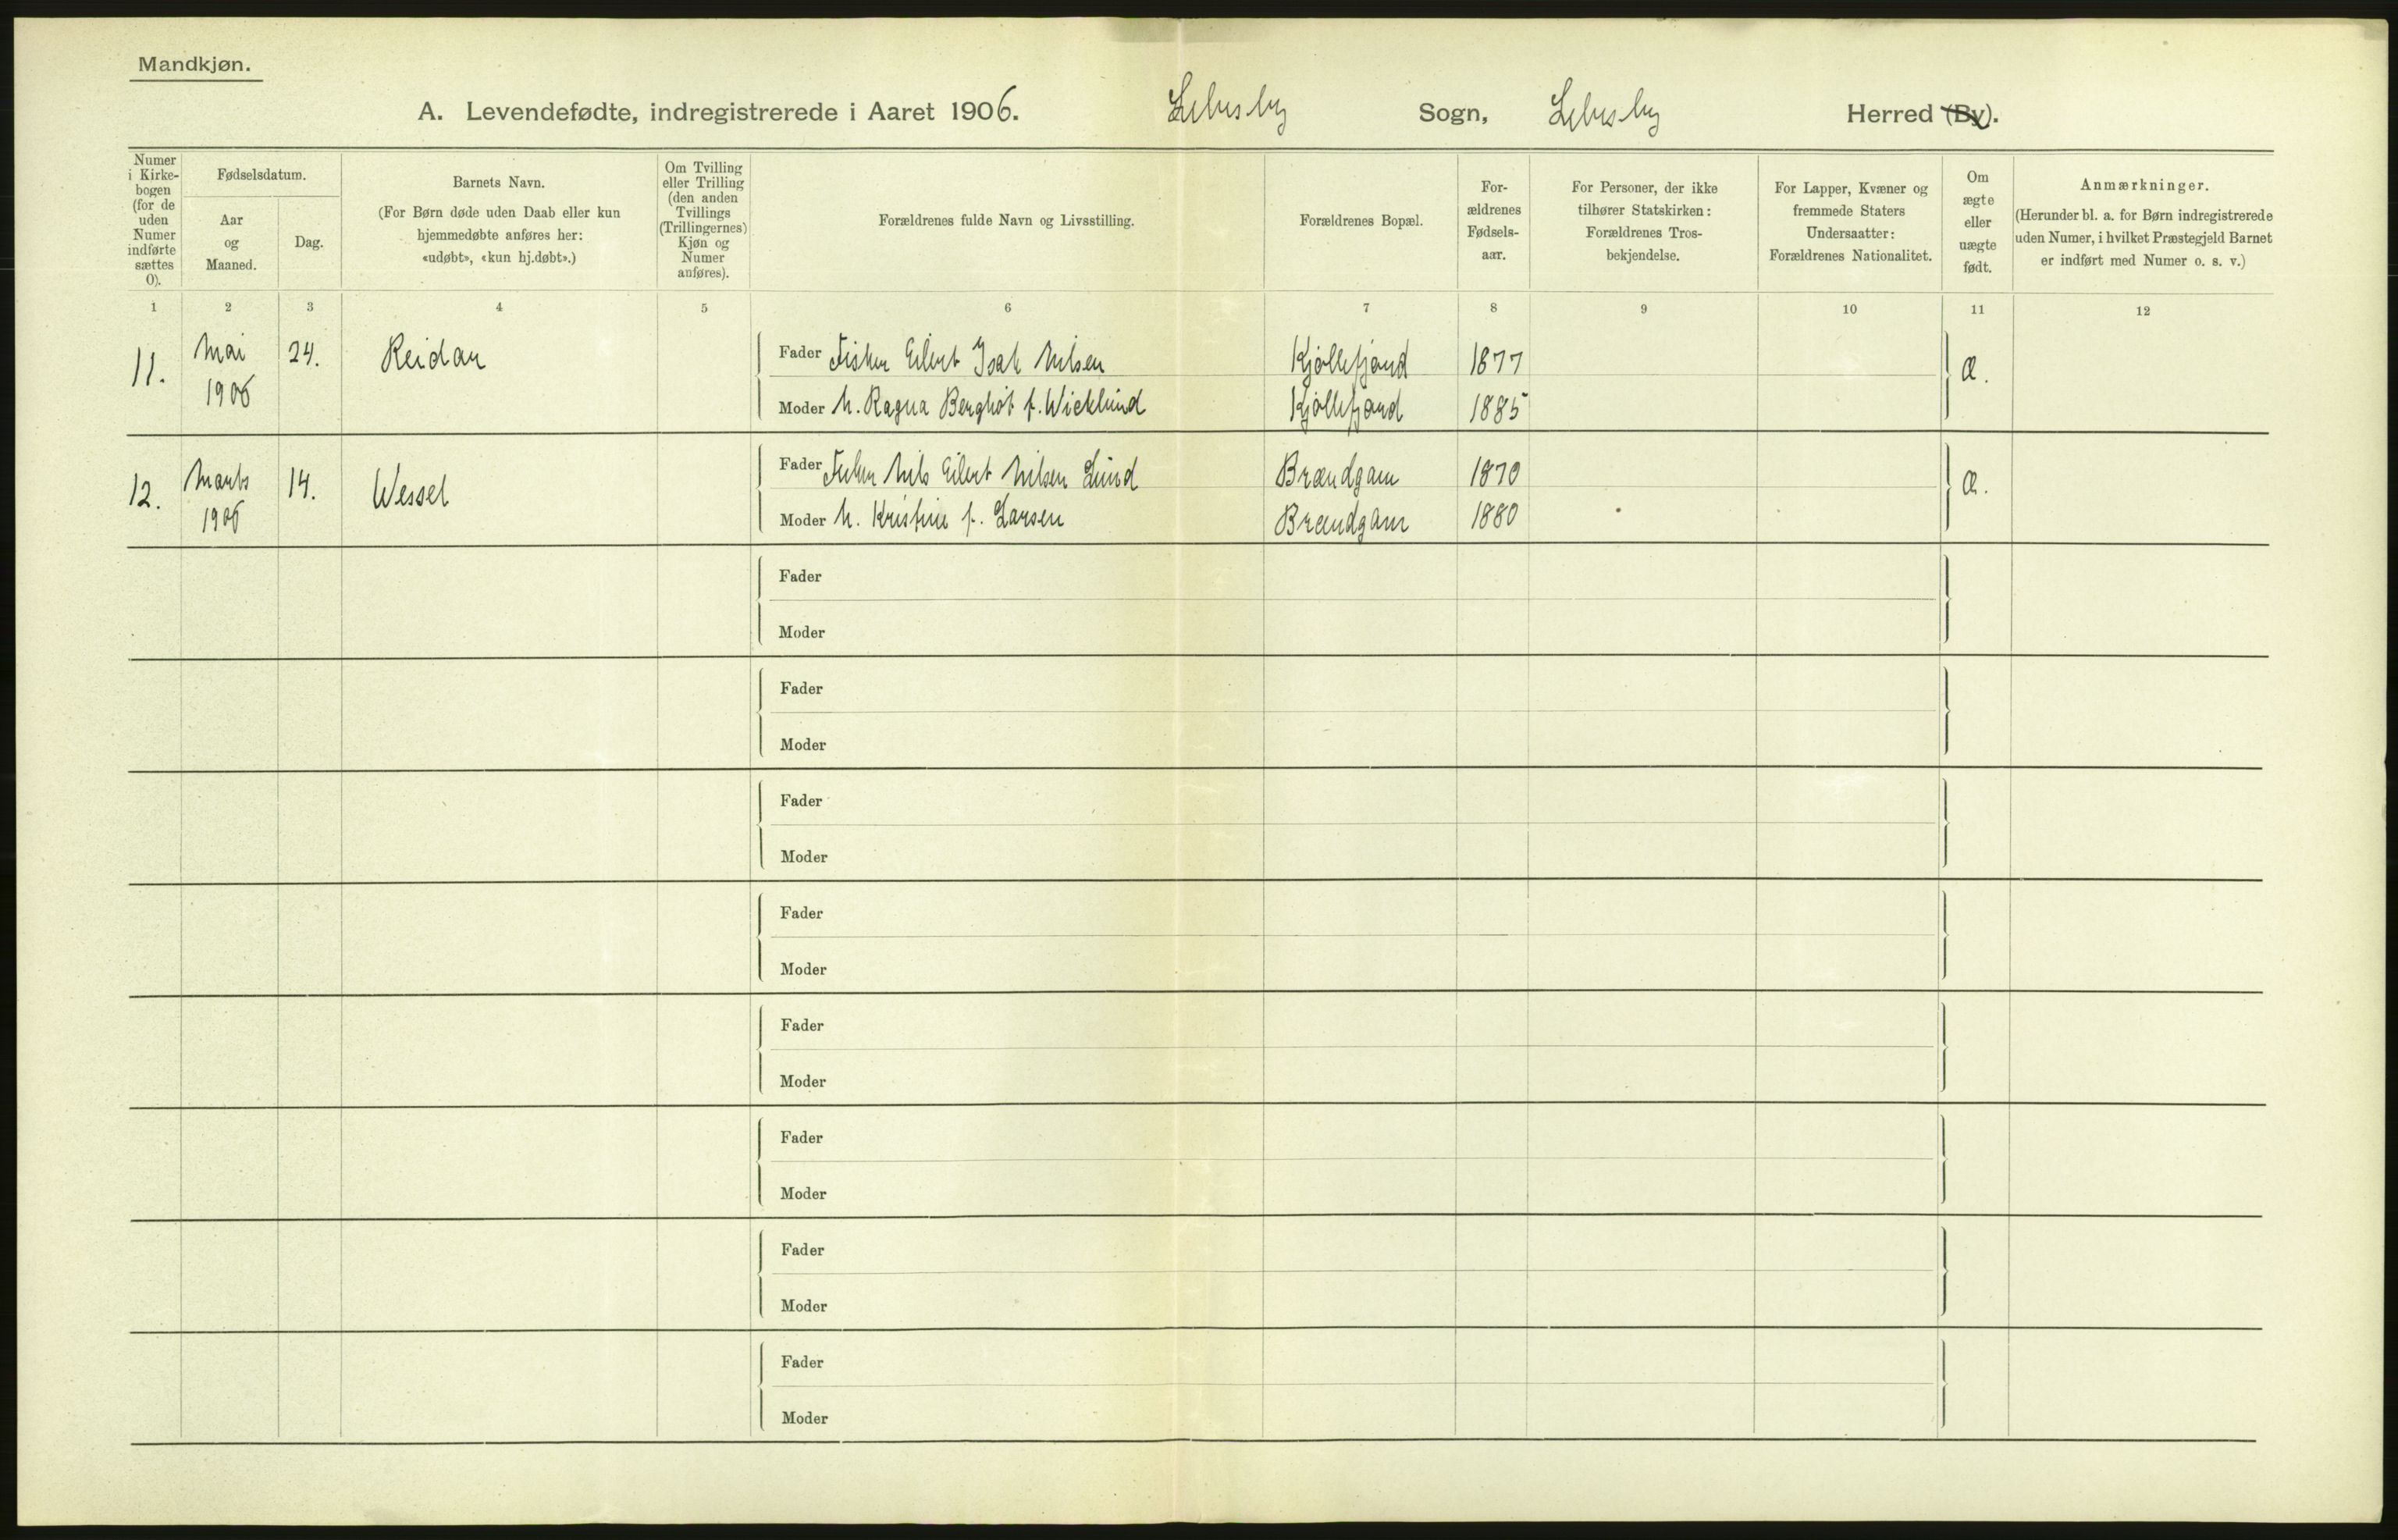 Mandkjøn.
A. Levendefødte, indregistrerede i Aaret 1906. Lebesby Sogn, Lebesby Herred (By).
Numer i Kirke-bogen (for de uden Numer indførte sættes 0).
Fødselsdatum.
Aar og Maaned.
Dag.
Barnets Navn.
(For Børn døde uden Daab eller kun
hjemmedøbte anføres her:
«udøbt», «kun hj.døbt».)
Om Tvilling
eller Trilling
(den anden
Tvillings
(Trillingernes)
Kjøn og
Numer
anføres).
Forældrenes fulde Navn og Livsstilling.
Forældrenes Bopæl.
For-
ældrenes
Fødsels-
aar.
For Personer, der ikke
tilhører Statskirken:
Forældrenes Tros-
bekjendelse.
For Lapper, Kvæner og
fremmede Staters
Undersaatter:
Forældrenes Nationalitet.
Om
ægte
eller
uægte
født.
Anmærkninger.
(Herunder bl. a. for Børn indregistrerede
uden Numer, i hvilket Præstegjeld Barnet
er indført med Numer o. s. v.)
1 2 3 4 5 6 7 8 9 10 11 12
11. Mai 1906 24. Reidar
Fader Fisker Eilert Isak Nilsen Kjøllefjord 1877 Æ.
Moder h. Ragna Berghot f. Wicklund Kjøllefjord 1885
12. Marts 1906 14. Wessel
Fader Fisker Nils Eilert Nilsen Lund Brændgam 1870 Æ.
Moder h. Kristine f. Larsen Brændgam 1880
Fader
Moder
Fader
Moder
Fader
Moder
Fader
Moder
Fader
Moder
Fader
Moder
Fader
Moder
Fader
Moder